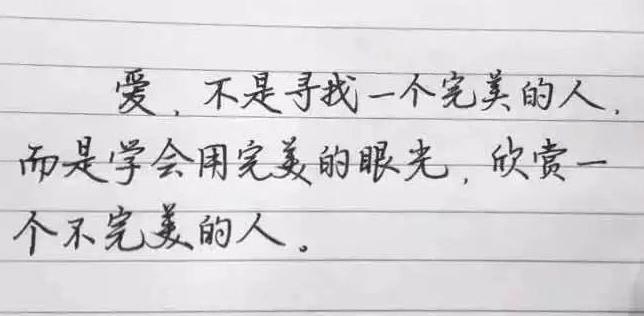 爱，不是寻找一个完美的人，
而是学会用完美的眼光，欣赏一
个不完美的人。